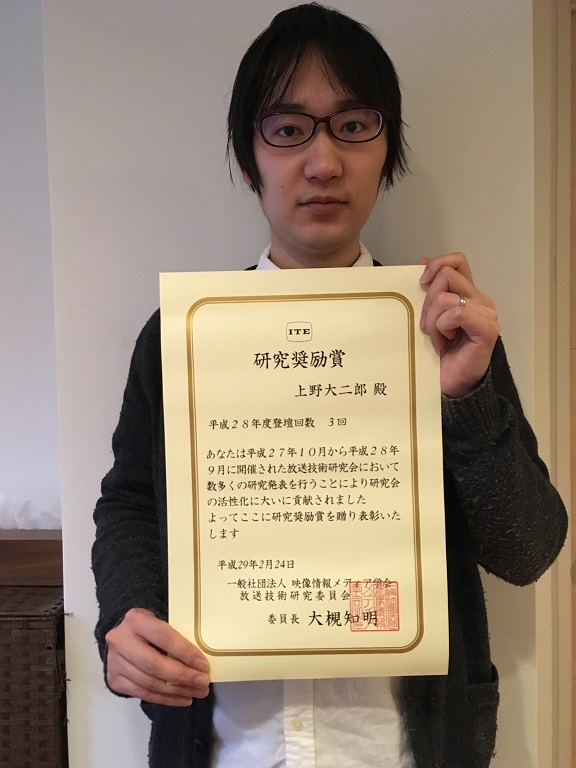 ITE
研究奨励賞
上野大二郎 殿
平成２８年度登壇回数　３回
あなたは平成２７年１０月から平成２８年
９月に開催された放送技術研究会において
数多くの研究発表を行うことにより研究会
の活性化に大いに貢献されました
よってここに研究奨励賞を贈り表彰いた
します
平成29年2月24日
一般社団法人 映像情報メディア学会
放送技術研究委員会
委員長 大槻知明